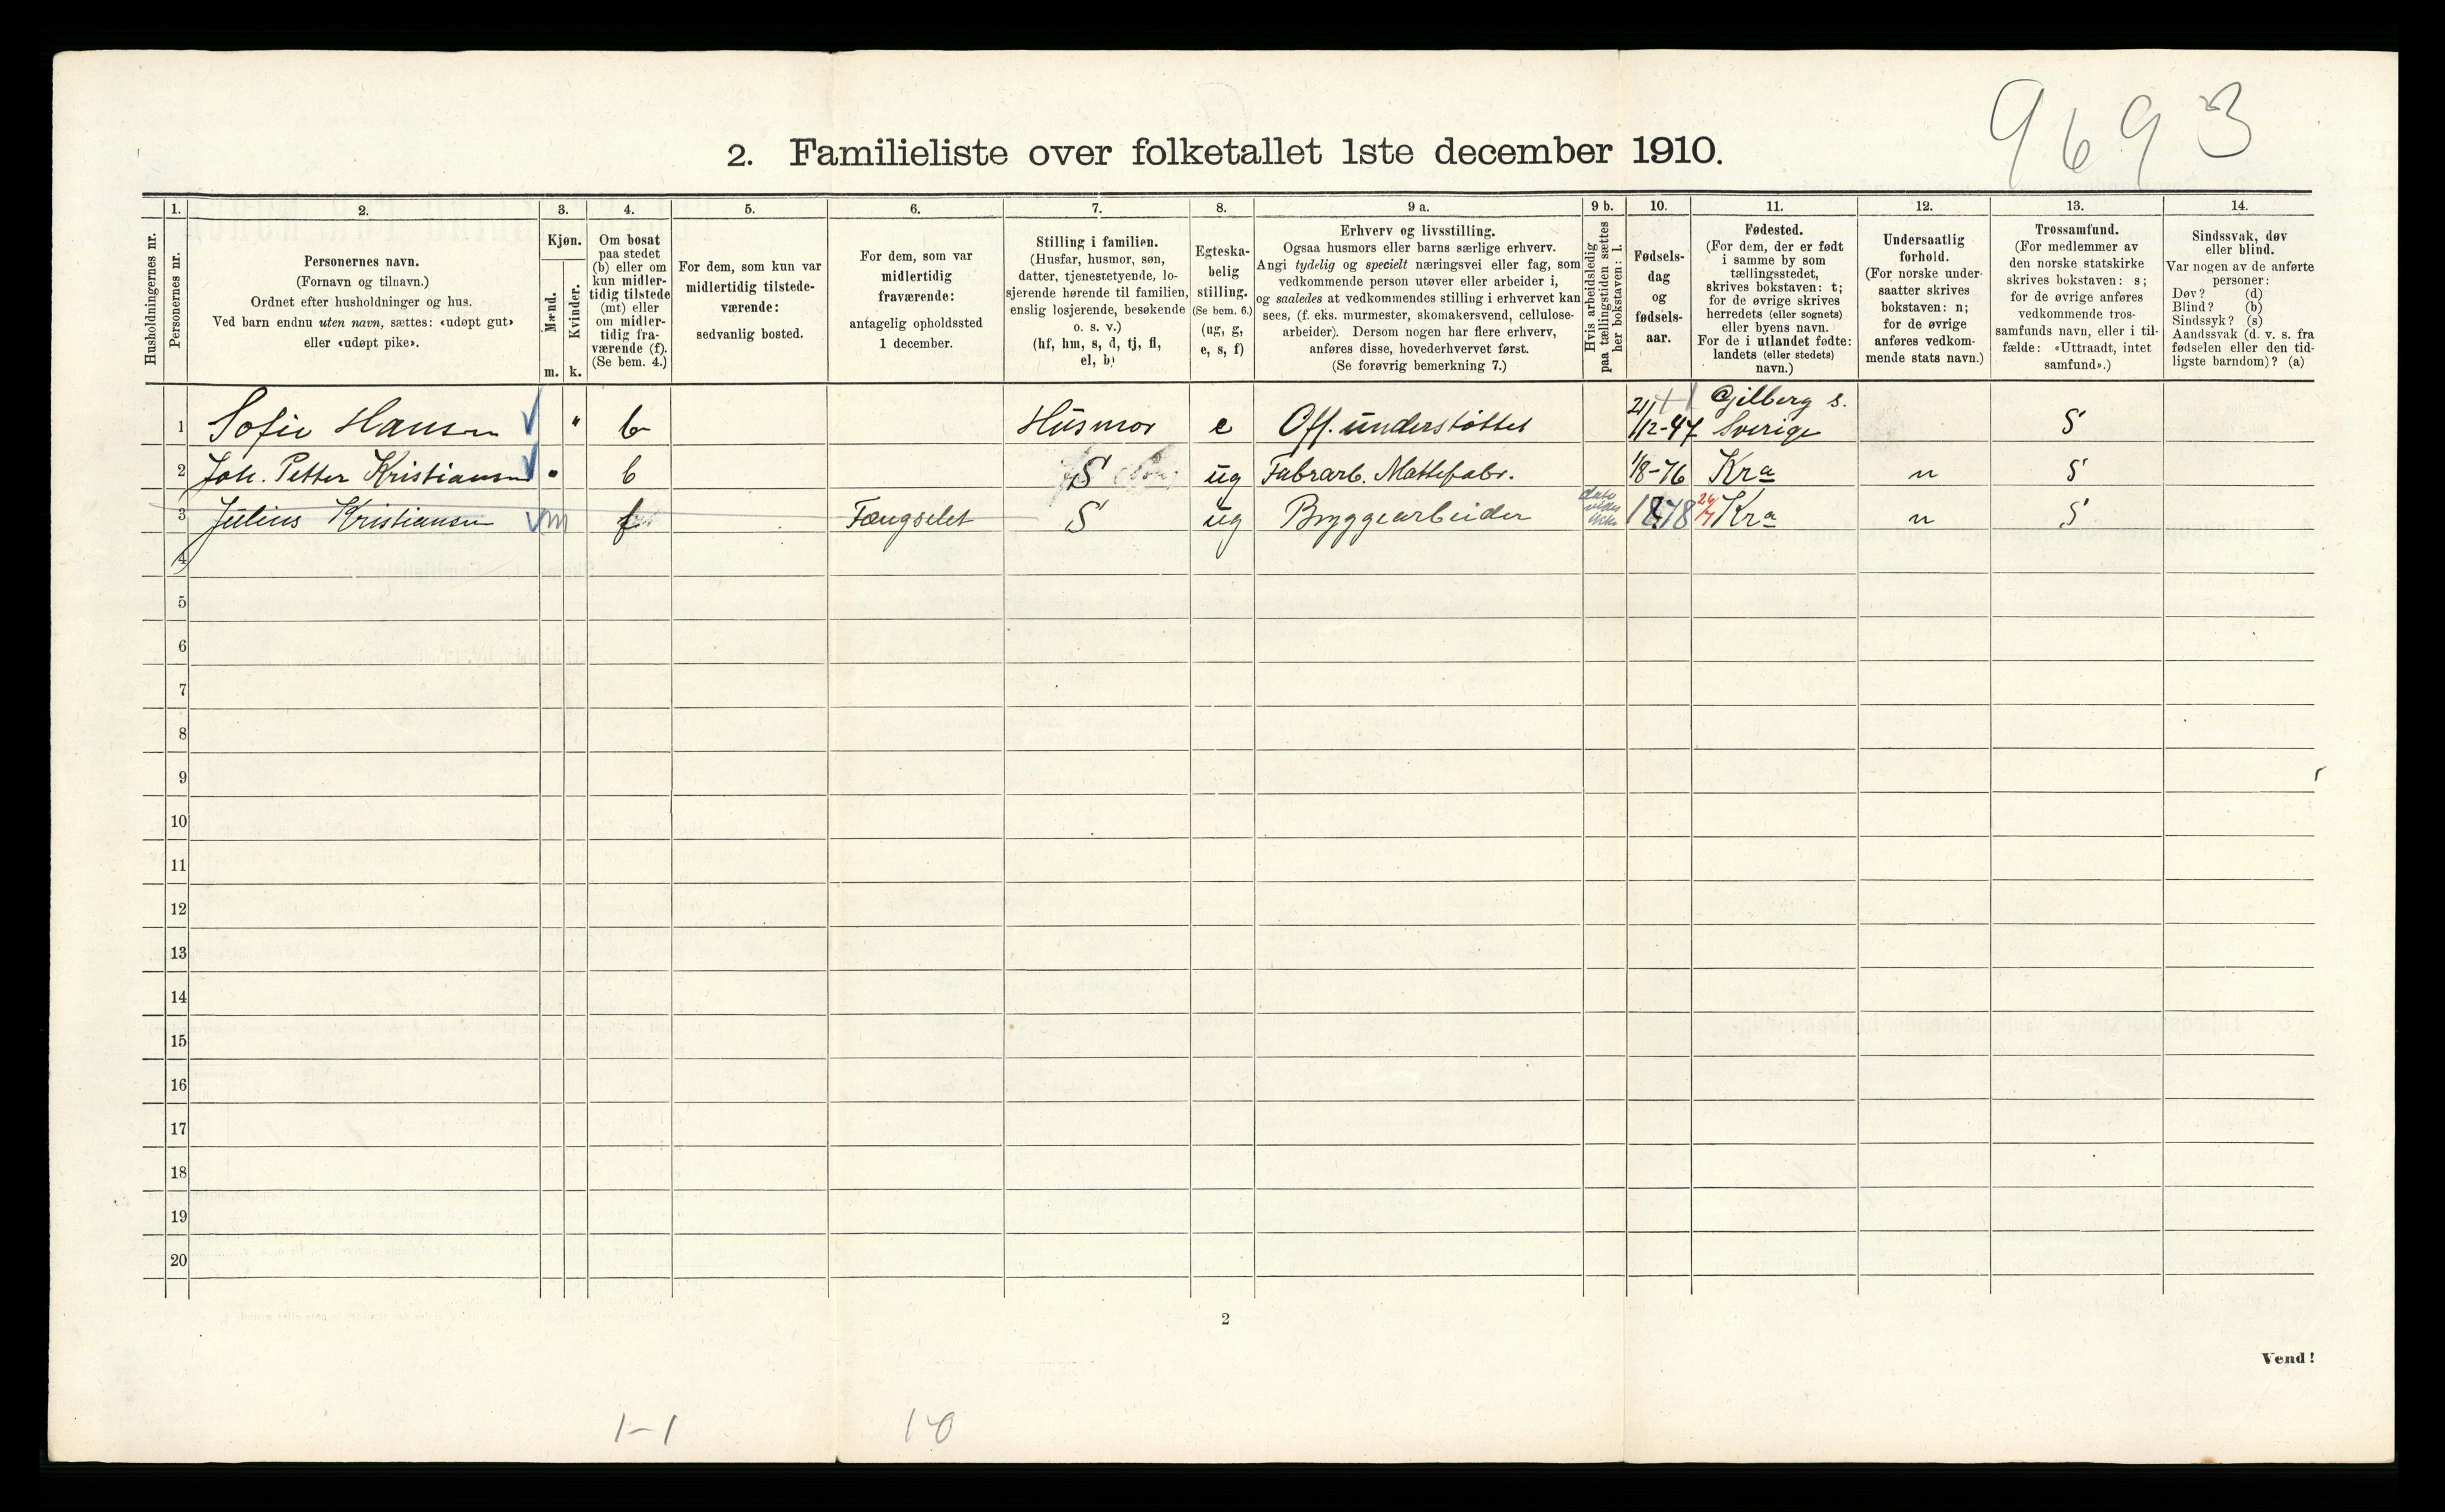 9693
2. Familieliste over folketallet 1ste december 1910.
Husholdningernes nr.
1.
Personernes nr.
2.
Personernes navn.
(Fornavn og tilnavn.)
Ordnet efter husholdninger og hus.
Ved barn endnu uten navn, sættes: «udøpt gut»
eller «udøpt pike».
3.
Kjøn.
Mænd.
m.
Kvinder.
k.
4.
Om bosat
paa stedet
(b) eller om
kun midler-
tidig tilstede
(mt) eller
om midler-
tidig fra-
værende (f).
(Se bem. 4.)
5.
For dem, som kun var
midlertidig tilstede-
værende:
sedvanlig bosted.
6.
For dem, som var
midlertidig
fraværende:
antagelig opholdssted
1 december.
7.
Stilling i familien.
(Husfar, husmor, søn,
datter, tjenestetyende, lo-
sjerende hørende til familien,
enslig losjerende, besøkende
o. s. v.)
(hf, hm, s, d, tj, fl,
el, b)
8.
Egteska-
belig
stilling.
(Se bem. 6.)
(ug, g,
e, s, f)
9 a.
Erhverv og livsstilling.
Ogsaa husmors eller barns særlige erhverv.
Angi tydelig og specielt næringsvei eller fag, som
vedkommende person utøver eller arbeider i,
og saaledes at vedkommendes stilling i erhvervet kan
sees, (f. eks. murmester, skomakersvend, cellulose-
arbeider). Dersom nogen har flere erhverv,
anføres disse, hovederhvervet først.
(Se forøvrig bemerkning 7.)
9 b.
Hvis arbeidsledig
paa tællingstiden sættes
her bokstaven: l.
10.
Fødsels-
dag
og
fødsels-
aar.
11.
Fødested.
(For dem, der er født
i samme by som
tællingsstedet,
skrives bokstaven: t;
for de øvrige skrives
herredets (eller sognets)
eller byens navn.
For de i utlandet fødte:
landets (eller stedets)
navn.)
12.
Undersaatlig
forhold.
(For norske under-
saatter skrives
bokstaven: n;
for de øvrige
anføres vedkom-
mende stats navn.)
13.
Trossamfund.
(For medlemmer av
den norske statskirke
skrives bokstaven: s;
for de øvrige anføres
vedkommende tros-
samfunds navn, eller i til-
fælde: «Uttraadt, intet
samfund».)
14.
Sindssvak, døv
eller blind.
Var nogen av de anførte
personer:
Døv? (d)
Blind? (b)
Sindssyk? (s)
Aandssvak (d. v. s. fra
fødselen eller den tid-
ligste barndom)? (a)
1 Sofie Hansen " b Husmor e Off. understöttet 21/12-47 Gilberg s. Sverige S
2 Joh. Petter Kristiansen b S ug Fabrarb. Mattefabr. 1/8-76 Kra n S
3 Julius Kristiansen m f Fængselet S ug Bryggearbeider 1878 Kra n S
4
5
6
7
8
9
10
11
12
13
14
15
16
17
18
19
20
2
Vend!
1-1
1-0